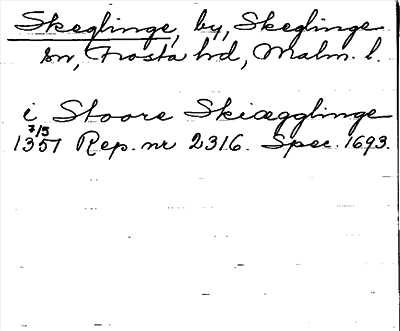 Skeglinge, by, Skeglinge
sn, Frosta hd, Malm. l.
i Stoore Skiægglinge
7/5
1357 Rep. nr 2316. Spec. 1693.